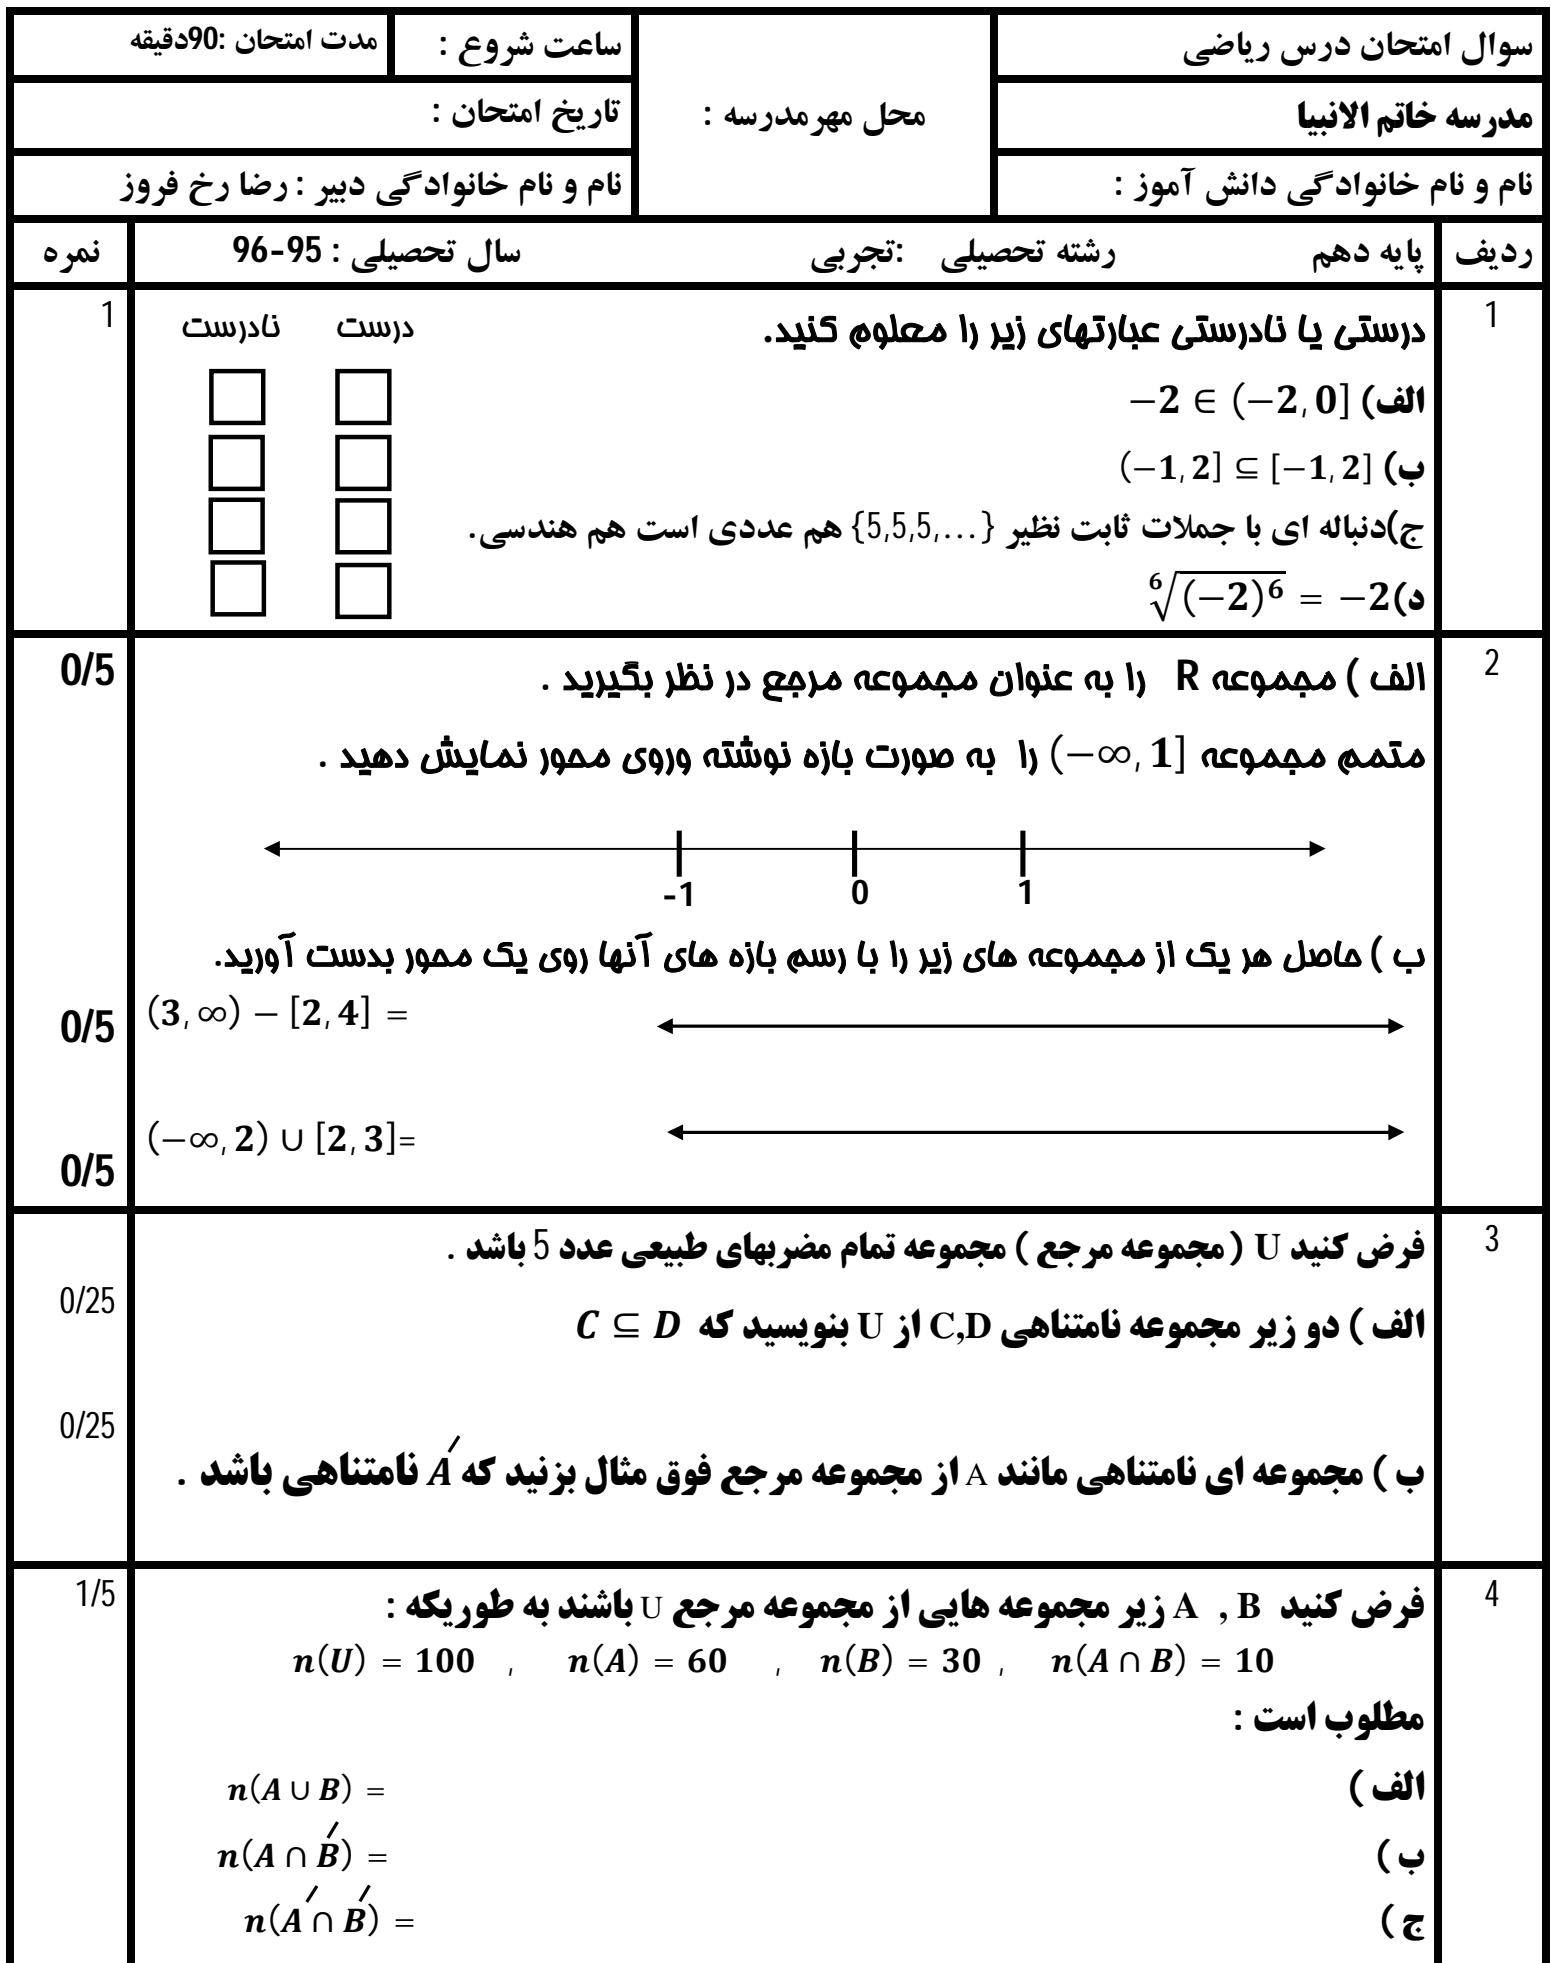 سوال امتحان درس ریاضی
محل مهرمدرسه :
ساعت شروع :
مدت امتحان :90دقیقه
مدرسه خاتم الانبیا
تاریخ امتحان :
نام و نام خانوادگی دانش آموز :
نام و نام خانوادگی دبیر : رضا رخ فروز
ردیف
پایه دهم رشته تحصیلی :تجربی سال تحصیلی : 95-96
نمره
1
درستی یا نادرستی عبارتهای زیر را معلوم کنید. درست نادرست
1
الف) −2 ∈ (−2, 0]
ب) (−1, 2] ⊆ [−1, 2]
ج)دنباله ای با جملات ثابت نظیر {5,5,5,…} هم عددی است هم هندسی.
د) ⁶√(−2)⁶ = −2
2
الف ) مجموعه R را به عنوان مجموعه مرجع در نظر بگیرید .
0/5
متمم مجموعه (−∞, 1] را به صورت بازه نوشته وروی محور نمایش دهید .
-1 0 1
ب ) حاصل هر یک از مجموعه های زیر را با رسم بازه های آنها روی یک محور بدست آورید.
(3, ∞) − [2, 4] =
0/5
(−∞, 2) ∪ [2, 3]=
0/5
3
فرض کنید U ( مجموعه مرجع ) مجموعه تمام مضربهای طبیعی عدد 5 باشد .
0/25
الف ) دو زیر مجموعه نامتناهی C,D از U بنویسید که C ⊆ D
0/25
ب ) مجموعه ای نامتناهی مانند A از مجموعه مرجع فوق مثال بزنید که A′ نامتناهی باشد .
4
فرض کنید A , B زیر مجموعه هایی از مجموعه مرجع U باشند به طوریکه :
1/5
n(U) = 100 , n(A) = 60 , n(B) = 30 , n(A ∩ B) = 10
مطلوب است :
الف ) n(A ∪ B) =
ب ) n(A ∩ B′) =
ج ) n(A′ ∩ B′) =